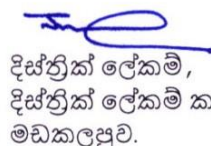 දිස්ත්‍රික් ලේකම්,
දිස්ත්‍රික් ලේකම් ක
මඩකලපුව.